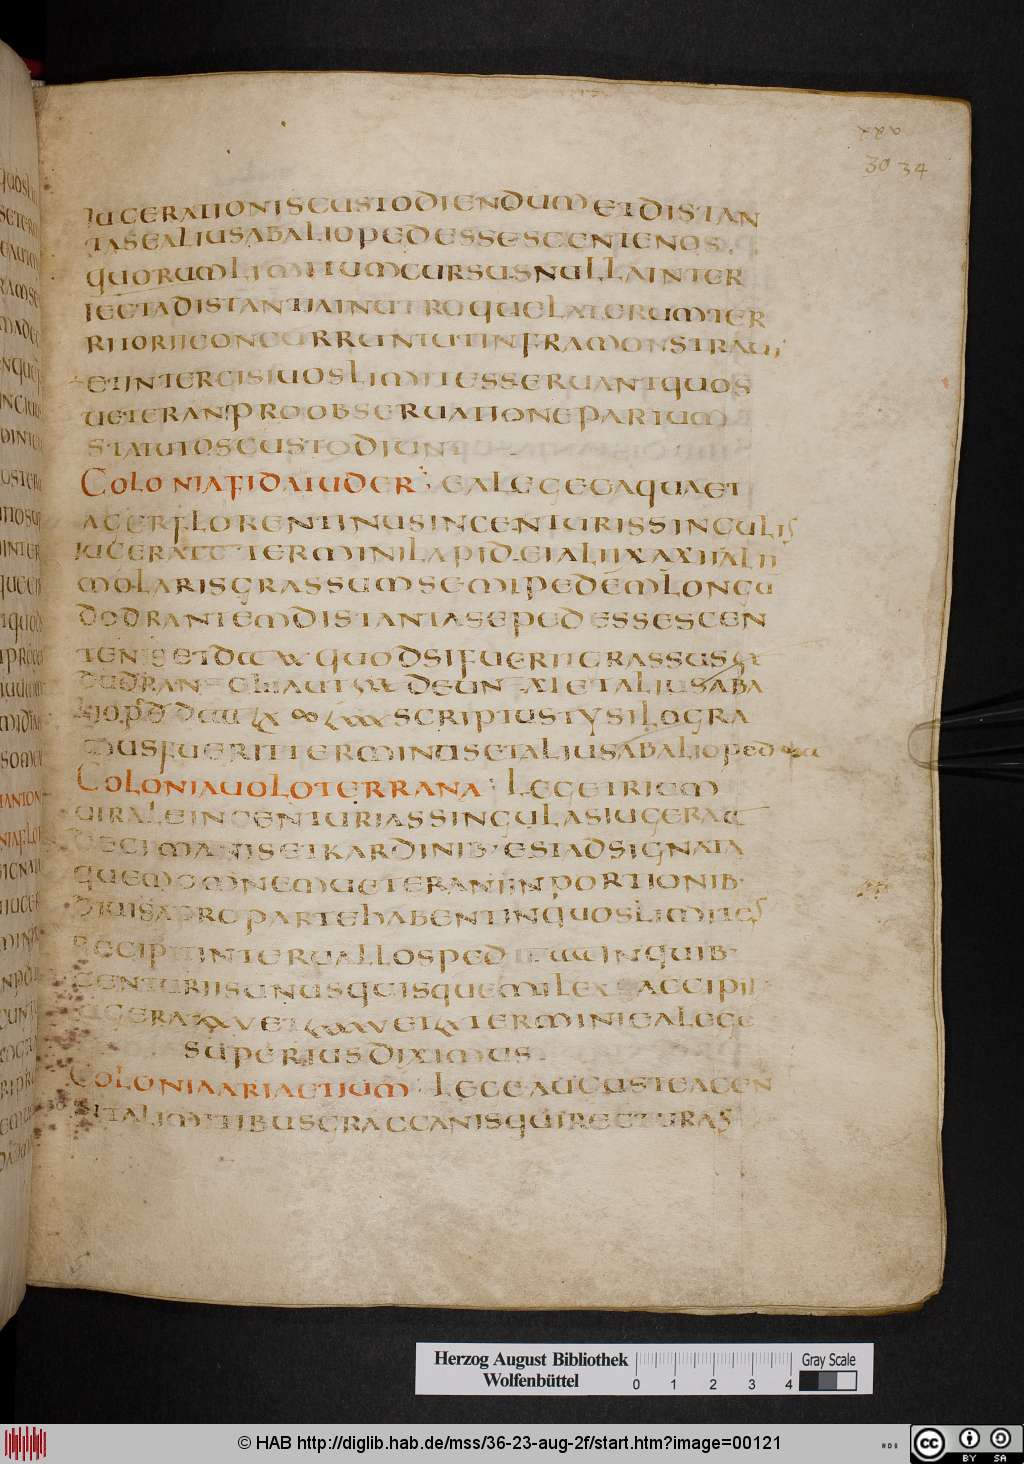 30 34
IUGERATIONISCUSTODIENDUMETDISTAN
TASEALIUSABALIOPEDESSESCENTENOS
QUORUMLIMITUMCURSUSNULLAINTER
IECTADISTANTIAINUTROQUELATERUMTER
RITORIICONCURRUNTUTINFRAMONSTRAUI
ETINTERCISIUOSLIMITESSERUANTQUOS
UETERANIPROOBSERUATIONEPARTIUM
STATUTOSCUSTODIUNT
COLONIAFIDAIUDER: EALEGEEAQUAET
AGERFLORENTINUSINCENTURISSINGULIS
TERMINILAPIDEIALIIXAXIIALII
MOLARISGRASSUMSEMIPEDEMLONGU
DODRANTEMDISTANTASEPEDESSESCEN
QUODSIFUERITGRASSUS
ETALIUSABA
SCRIPTUSTYSILOGRA
MUSFUERITTERMINUSETALIUSABALIOPED
COLONIAUOLOTERRANA: LEGETRIUM
UIRALEINCENTURIASSINGULASIUGERA
DECIMANISETKARDINIB·ESTADSIGNATA
QUEMOMNEMUETERANIINPORTIONIB·
HABENTINQUOSLIMITES
RECIPITINTERUALLOSPED INQUIB·
CENTURIISUNUSQUISQUEMILEX ACCIPIT
TERMINIEALEGE
SUPERIUSDIXIMUS
COLONIAARIAETIUM: LEGEAUGUSTEACEN
SITALIMITIBUSGRACCANISQUIRECTURAS
Herzog August Bibliothek
Wolfenbüttel
Gray Scale
0 1 2 3 4
© HAB http://diglib.hab.de/mss/36-23-aug-2f/start.htm?image=00121
cc BY SA